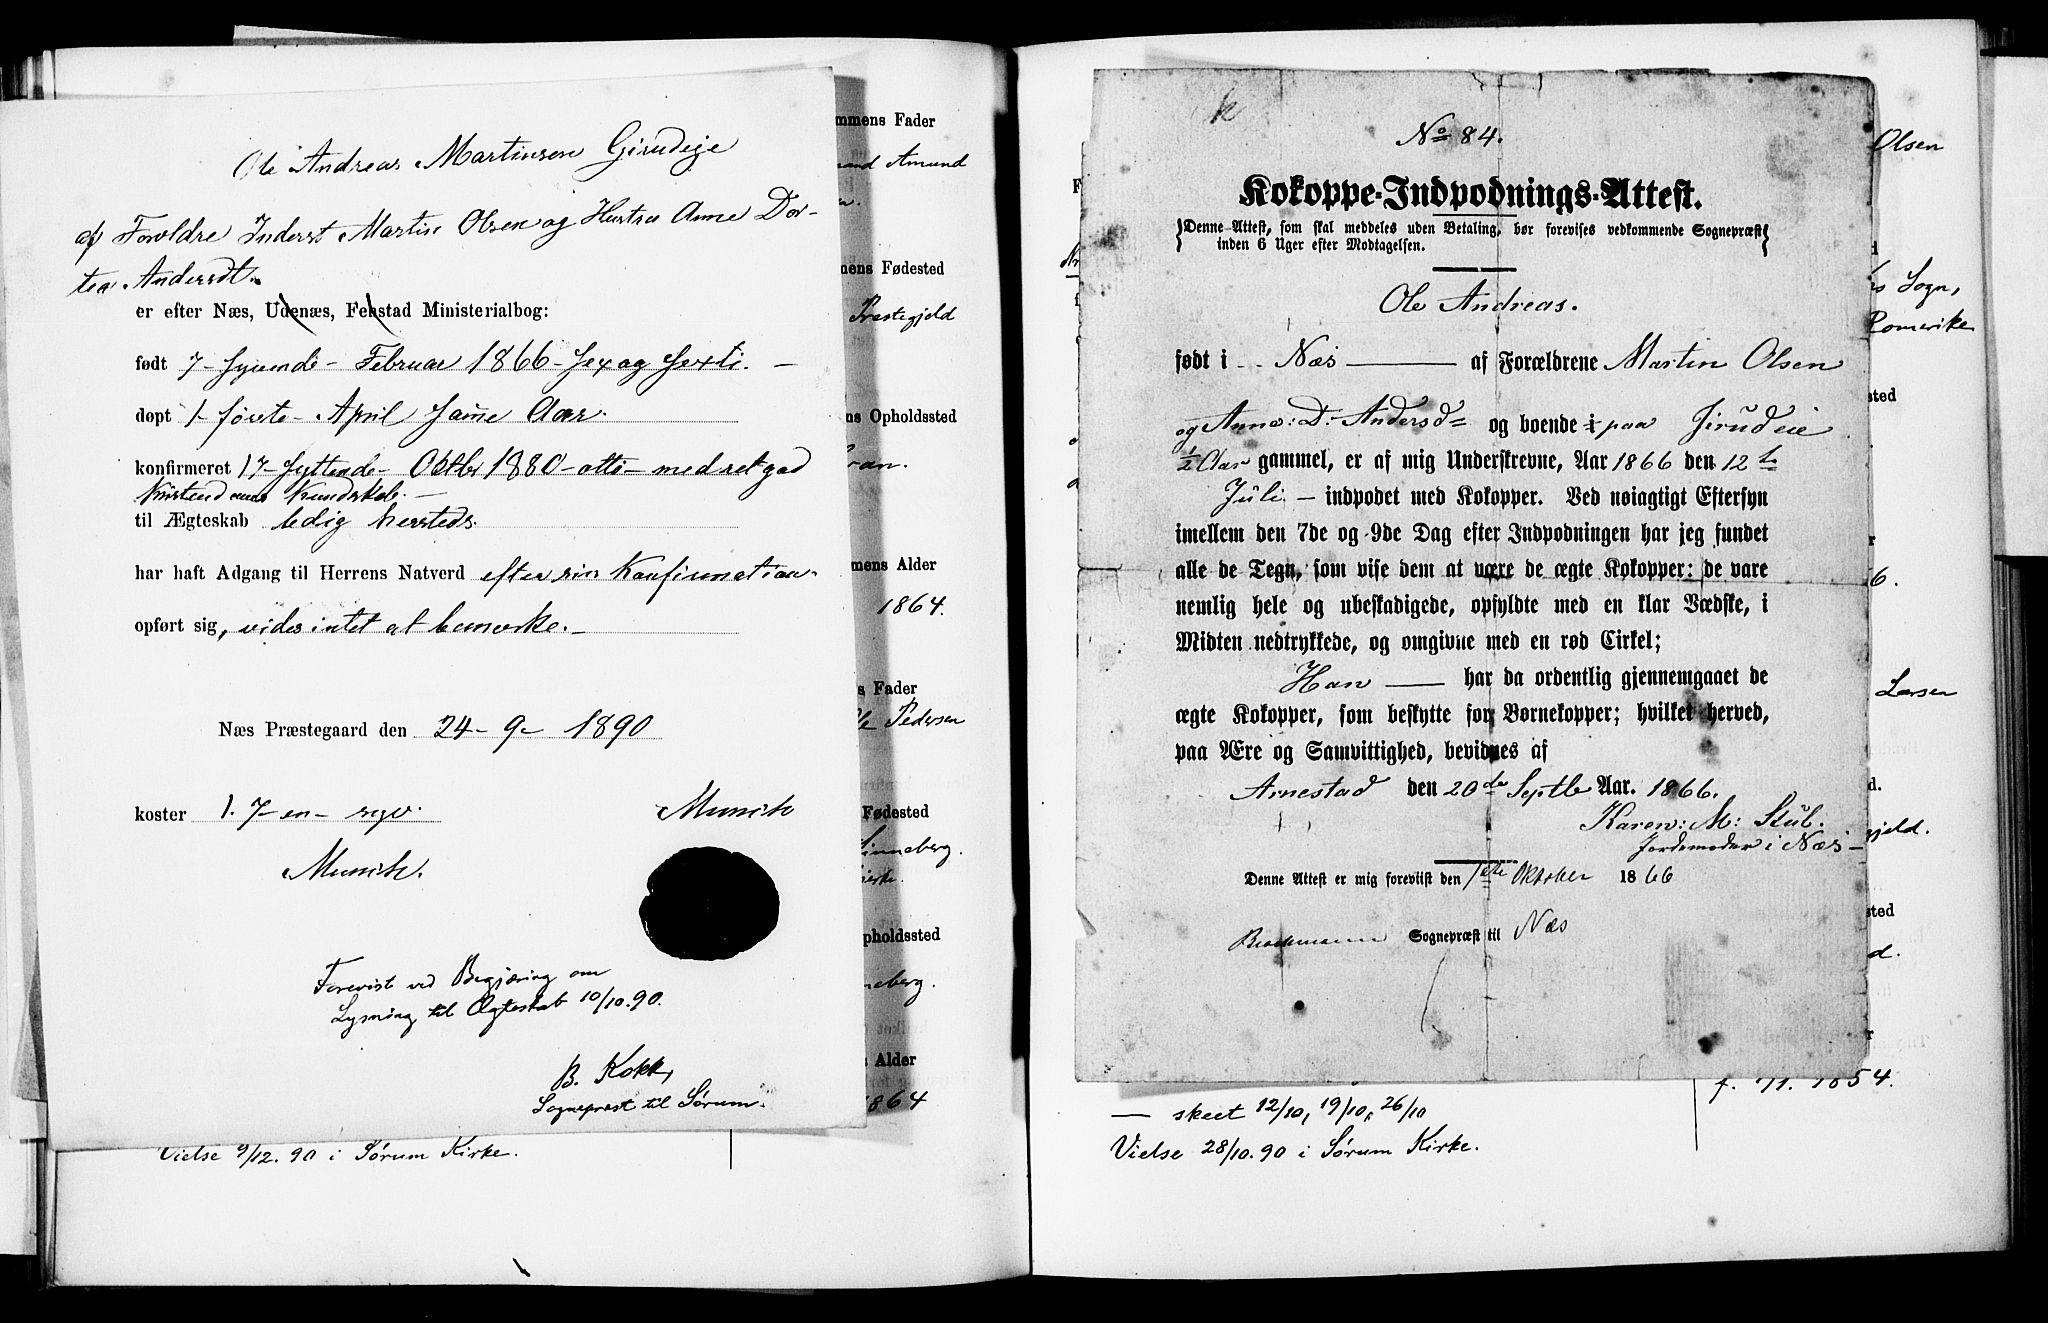 Ole Andreas Martinsen Girudeje
af Foreldre Inderst Martin Olsen og Hustru Anne Dor-
tea Andersdt.
er efter Næs, Udenæs, Fenstad Ministerialbog:
født 7- syvende- Februar 1866- sex og sexti. -
døpt 1- første- April same Aar.
konfirmeret 17- syttende- Oktbr 1880- otti- med ret god
Kristendoms Kundskab. -
til Ægteskab ledig hersteds.
har haft Adgang til Herrens Natverd efter sin Konfirmation.
opført sig, vides intet at bemerke. -
Næs Præstegaard den 24- 9- 1890
koster 1. 7- en- syv.
Munch
Munch.
Forevist ved Begjæring om
Lysning til Ægteskab 10/10.90.
B. Kokk,
Sogneprest til Sørum.
Vielse 9/12. 90 i Sørum Kirke.
mmens Fader
Amund
mens Fødested
Prestegjeld
ns Opholdssted
mmens Alder
1864.
s Fader
Pedersen
Fødested
Opholdssted
Alder
1864
k
No 84.
Kokoppe-Indpodnings-Attest.
{Denne Attest, som skal meddeles uden Betaling, bør forevises vedkommende Sognepræst
inden 6 Uger efter Modtagelsen.}
Ole Andreas.
født i -- Næs — af Forældrene Martin Olsen
og Anne: D: Andersd= og boende i paa Jirudeie
1/2 Aar gammel, er af mig Underskrevne, Aar 1866 den 12te
Juli - indpodet med Kokopper. Ved nøiagtigt Eftersyn
imellem den 7de og 9de Dag efter Indpodningen har jeg fundet
alle de Tegn, som vise dem at være de ægte Kokopper: de vare
nemlig hele og ubeskadigede, opfyldte med en klar Vædske, i
Midten nedtrykkede, og omgivne med en rød Cirkel;
Han — har da ordentlig gjennemgaaet de
ægte Kokopper, som beskytte for Børnekopper; hvilket herved,
paa Ære og Samvittighed, bevidnes af
Arnestad den 20de Septb Aar. 1866.
Karen: M: Stub.
Jordemoder i Næs -
Denne Attest er mig foreviist den 1ste Oktober 1866
Sognepræst til Næs
Olsen
Sogn,
Romerike
Larsen
f. 1854.
— skeet 12/10, 19/10, 26/10
Vielse 28/10. 90 i Sørum Kirke.